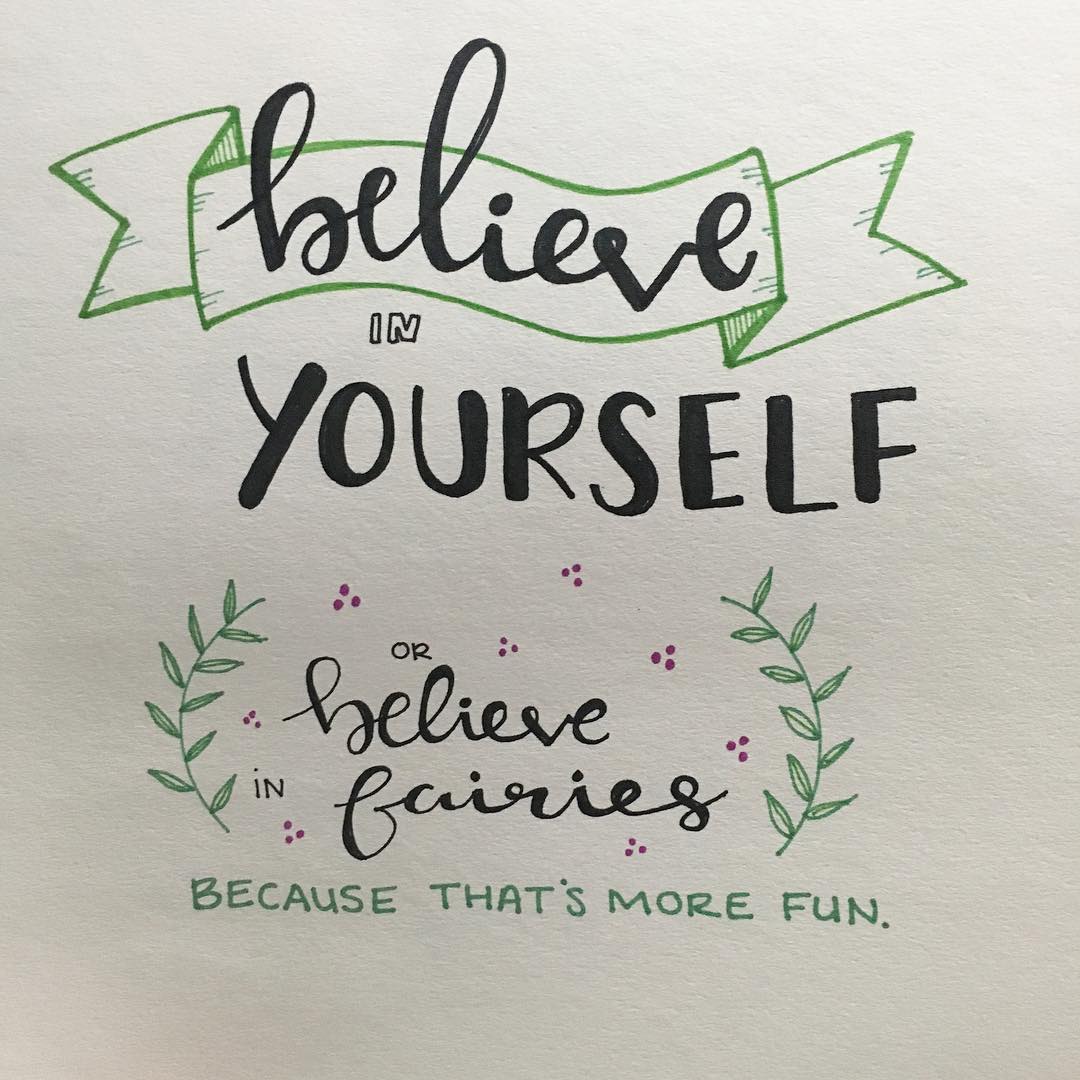 believe
IN
YOURSELF
OR
believe
iN fairies
BECAUSE THAT'S MORE FUN.